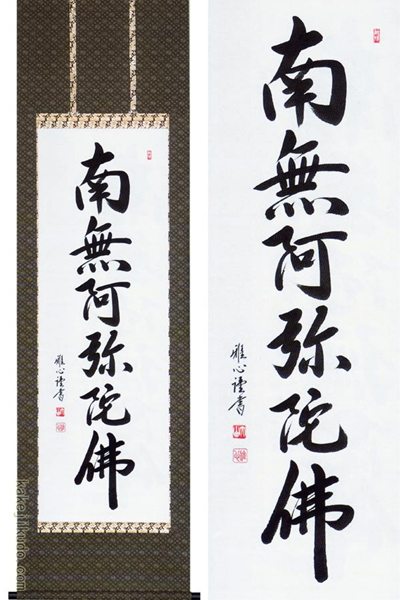 南無阿弥陀佛
雅心謹書
南無阿弥陀佛
雅心謹書
kakejikudo.com